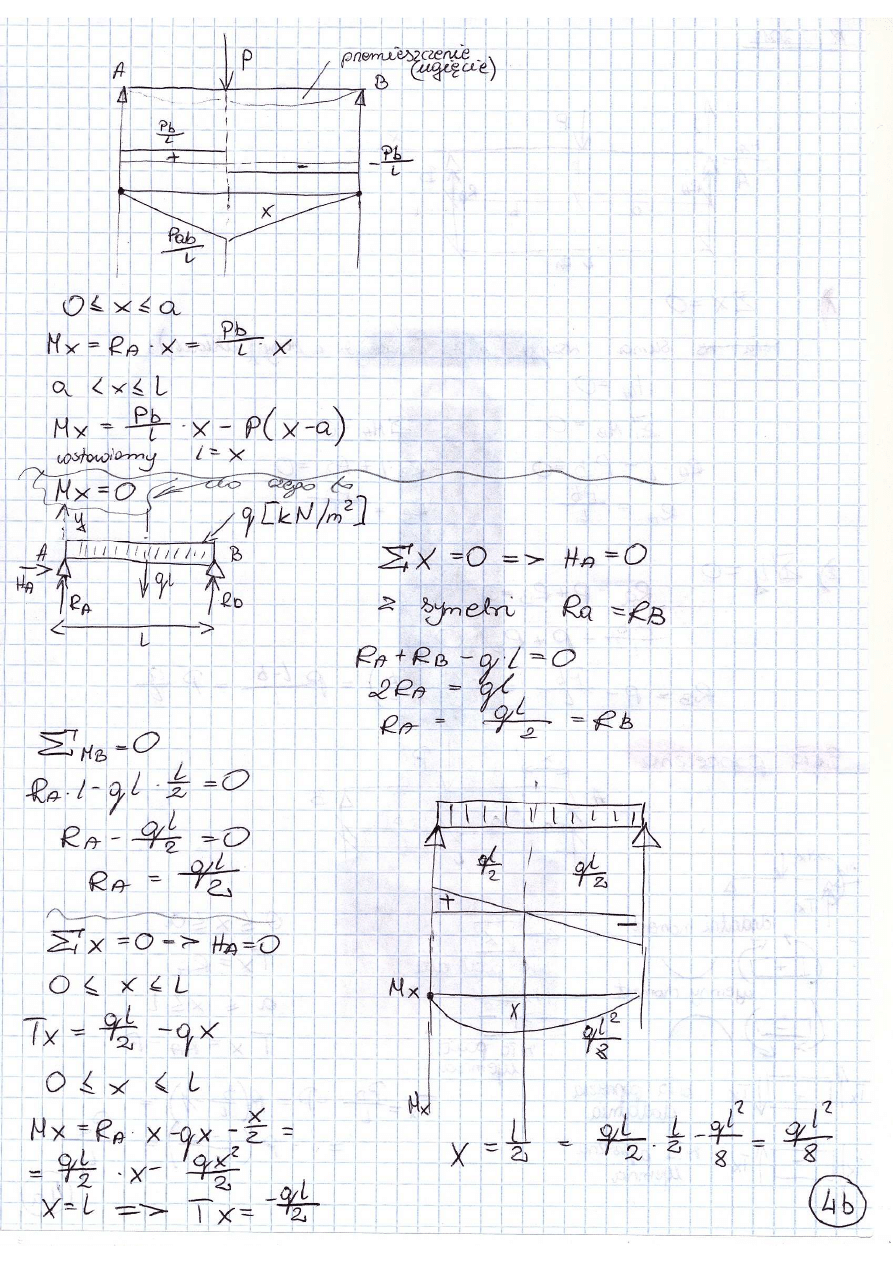 P
przemieszczenie
(ugięcie)
A
B
Pb/l
+
-
-Pb/l
x
Pab/l
0 ≤ x ≤ a
Mx = RA · x = Pb/l · x
a < x ≤ l
Mx = Pb/l · x - P(x-a)
wstawiamy l = x
Mx = 0 do czego to
y
q [kN/m²]
A
B
HA
RA
ql
Rb
L
ΣX = 0 => HA = 0
z symetri Ra = RB
RA + RB - q·l = 0
2RA = ql
RA = ql/2 = RB
ΣMB = 0
RA·l - ql · l/2 = 0
RA - ql/2 = 0
RA = ql/2
ql/2
ql/2
+
-
Σx = 0 -> HA = 0
0 ≤ x ≤ L
Tx = ql/2 - qx
0 ≤ x ≤ l
Mx
x
ql²/8
Mx
Mx = RA · x - qx - x/2 =
= ql/2 · x - qx²/2
x = L => Tx = -ql/2
x = l/2 = ql/2 · l/2 - ql²/8 = ql²/8
4b